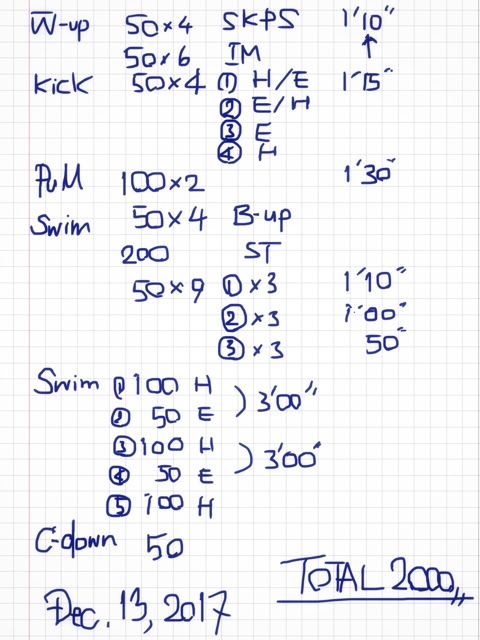 W-up 50×4 SKPS 1'10"
50×6 IM ↑
Kick 50×4 ① H/E 1'15"
② E/H
③ E
④ H
Pull 100×2 1'30"
Swim 50×4 B-up
200 ST
50×9 ①×3 1'10"
②×3 1'00"
③×3 50"
Swim ① 100 H
② 50 E ) 3'00"
③ 100 H
④ 50 E ) 3'00"
⑤ 100 H
C-down 50
TOTAL 2000
Dec. 13, 2017